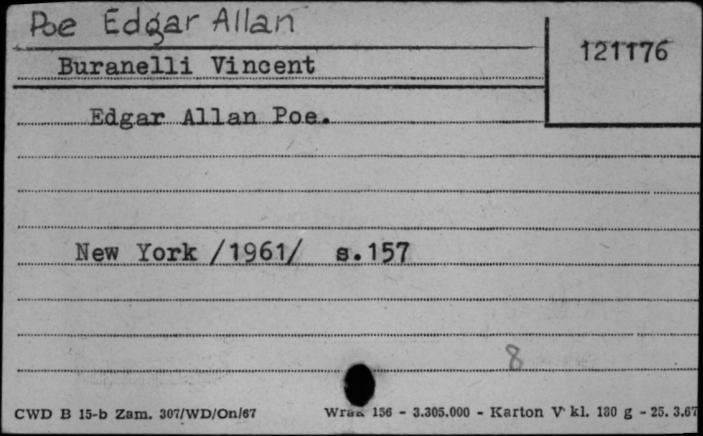 Poe Edgar Allan
121176
Buranelli Vincent
Edgar Allan Poe.
New York /1961/ s.157
8
CWD B 15-b Zam. 307/WD/On/67 Wrak 156 - 3.305.000 - Karton V kl. 180 g - 25. 3.67